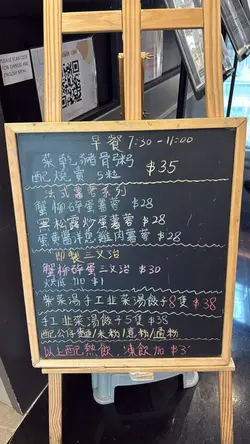 PLEASE SCAN CODE
早餐 7:30-11:00
菜乾豬骨粥
配燒賣 5粒 $35
法式薯蓉系列
蟹柳碎蛋薯蓉 $28
黑松露炒蛋薯蓉 $28
$28
即製三文治
蟹柳碎蛋三文治 $30
烘底加 $1
紫菜湯手工韭菜湯餃子8隻 $38
手工韭菜湯餃子5隻 $38
配公仔麵/米粉/意粉/通粉
以上配熱飲 凍飲加 $3